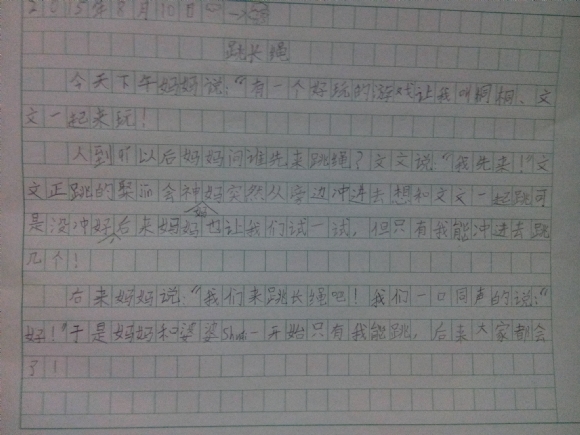 2015年8月10日 一
跳长绳
今天下午妈妈说:“有一个好玩的游戏让我叫桐桐、文
文一起来玩!
人到齐以后妈妈问谁先来跳绳?文文说:“我先来!”文
文正跳的聚而会神妈突然从旁边冲进去想和文文一起跳可
妈
是没冲好后来妈妈也让我们试一试,但只有我能冲进去跳
几个!
后来妈妈说:“我们来跳长绳吧!我们一口同声的说:“
好!”于是妈妈和婆婆Shuai一开始只有我能跳,后来大家都会
了!